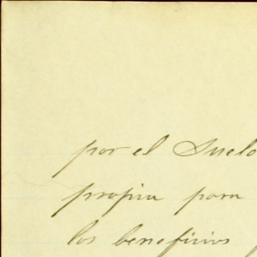 por el Suelo
propia para
los beneficios